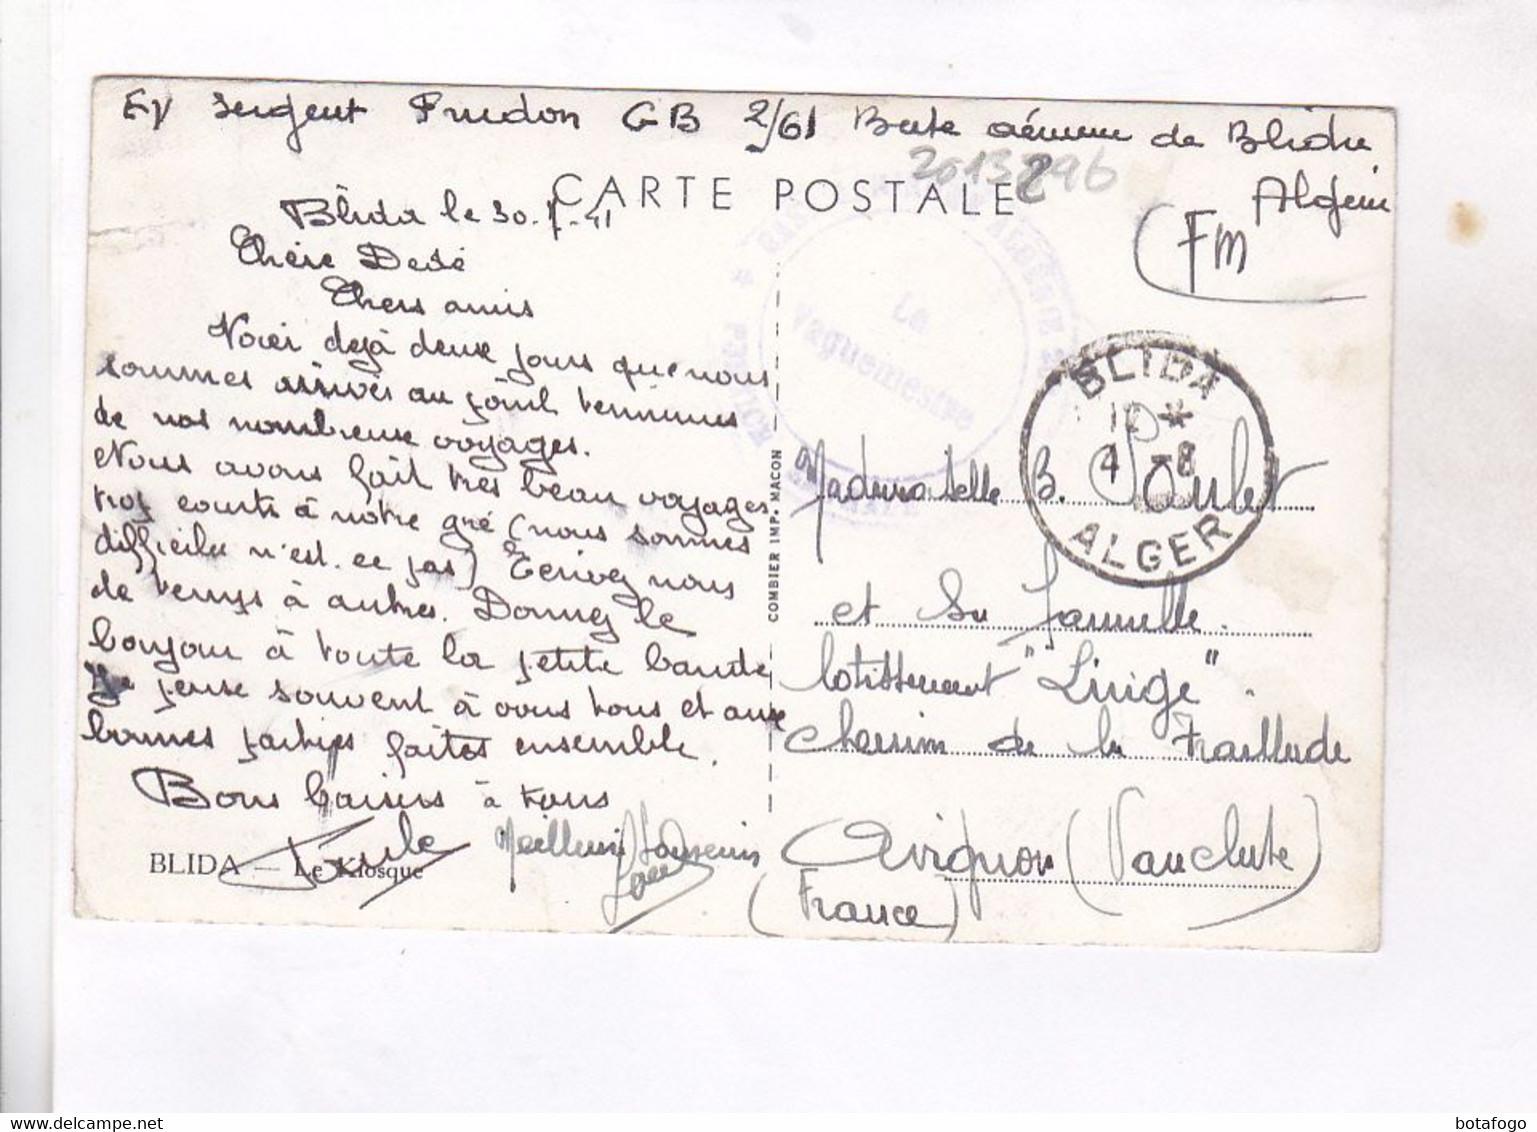 Ey Sergent Prudon GB 2/61 Base aérienne de Blida
Algérie
2013296
CARTE POSTALE
FM
Blida le 30-7-41
Chère Dédé
Chers amis
Voici déjà deux jours que nous
sommes arrivés au point terminus
de nos nombreux voyages.
Nous avons fait très beau voyages
trop courts à notre gré (nous sommes
difficiles n'est-ce pas) Ecrivez nous
de temps à autres. Donnez le
bonjour à toute la petite bande
Je pense souvent à vous tous et aux
bonnes parties faites ensemble.
Bons baisers à tous
Meilleurs
BLIDA — Le Kiosque
COMBIER IMP. MACON
Le
Vaguemestre
BLIDA
4 -8
ALGER
Mademoiselle B. Poulet
et Sa famille.
lotissement "Liuige".
Chemin de la Traillade
Avignon (Vaucluse)
(France)
botafogo